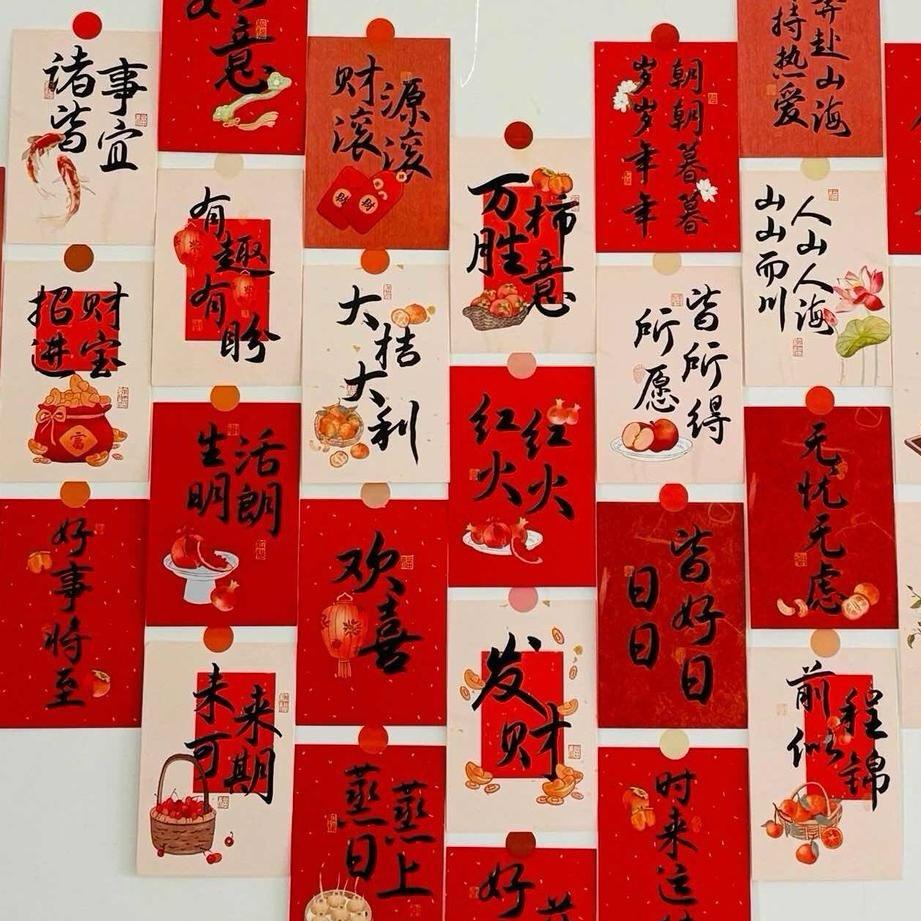 诸事
皆宜
意
财源
滚滚
财
财
朝朝暮暮
岁岁年年
赴山海
持热爱
有趣有盼
万柿
胜意
人山人海
山山而川
招财
进宝
富
大桔大利
所愿
皆所得
生活
明朗
红红
火火
无忧无虑
好事将至
欢喜
日日
皆好日
未来
可期
发财
前程
似锦
蒸蒸
日上
好
时来运